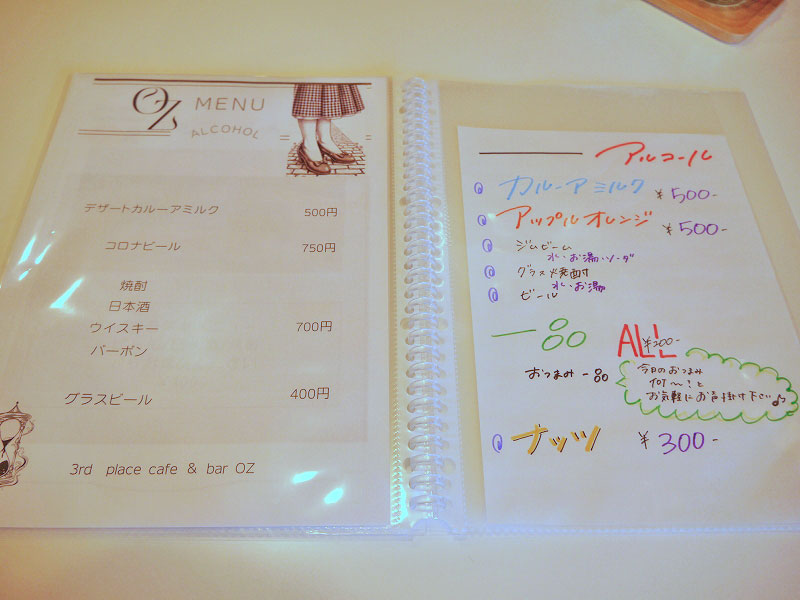 OZ MENU
ALCOHOL
デザートカルーアミルク 500円
コロナビール 750円
焼酎
日本酒
ウイスキー 700円
バーボン
グラスビール 400円
3rd place cafe & bar OZ
アルコール
カルーアミルク ¥500-
アップルオレンジ ¥500-
ジムビーム
水・お湯・ソーダ
グラス焼酎
水・お湯
ビール
一品 ALL ¥200-
おつまみ一品
今日のおつまみ
何〜!と
お気軽にお声掛け下さい♪
ナッツ ¥300-